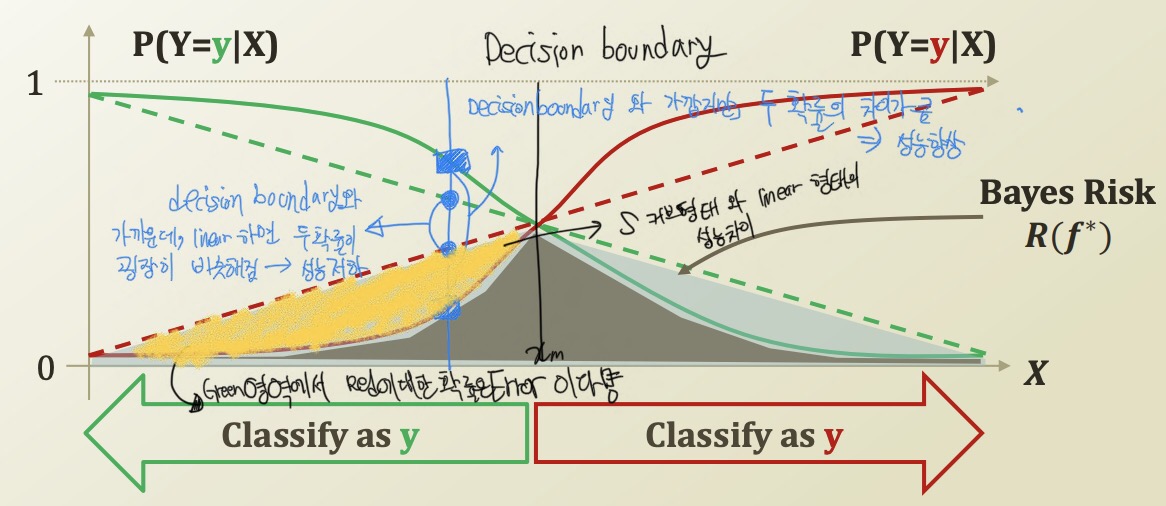 P(Y=y|X)
Decision boundary
P(Y=y|X)
1
Decision boundary 와 가깝지만, 두 확률의 차이가 큼
⇒ 성능향상
decision boundary와
가까운데, linear 하면 두 확률이
굉장히 비슷해짐 → 성능저하
S 커브형태 와 linear 형태의
성능차이
Bayes Risk
R(f*)
0
xm
X
Green영역에서 Red에대한 확률은 Error 이다
Classify as y
Classify as y